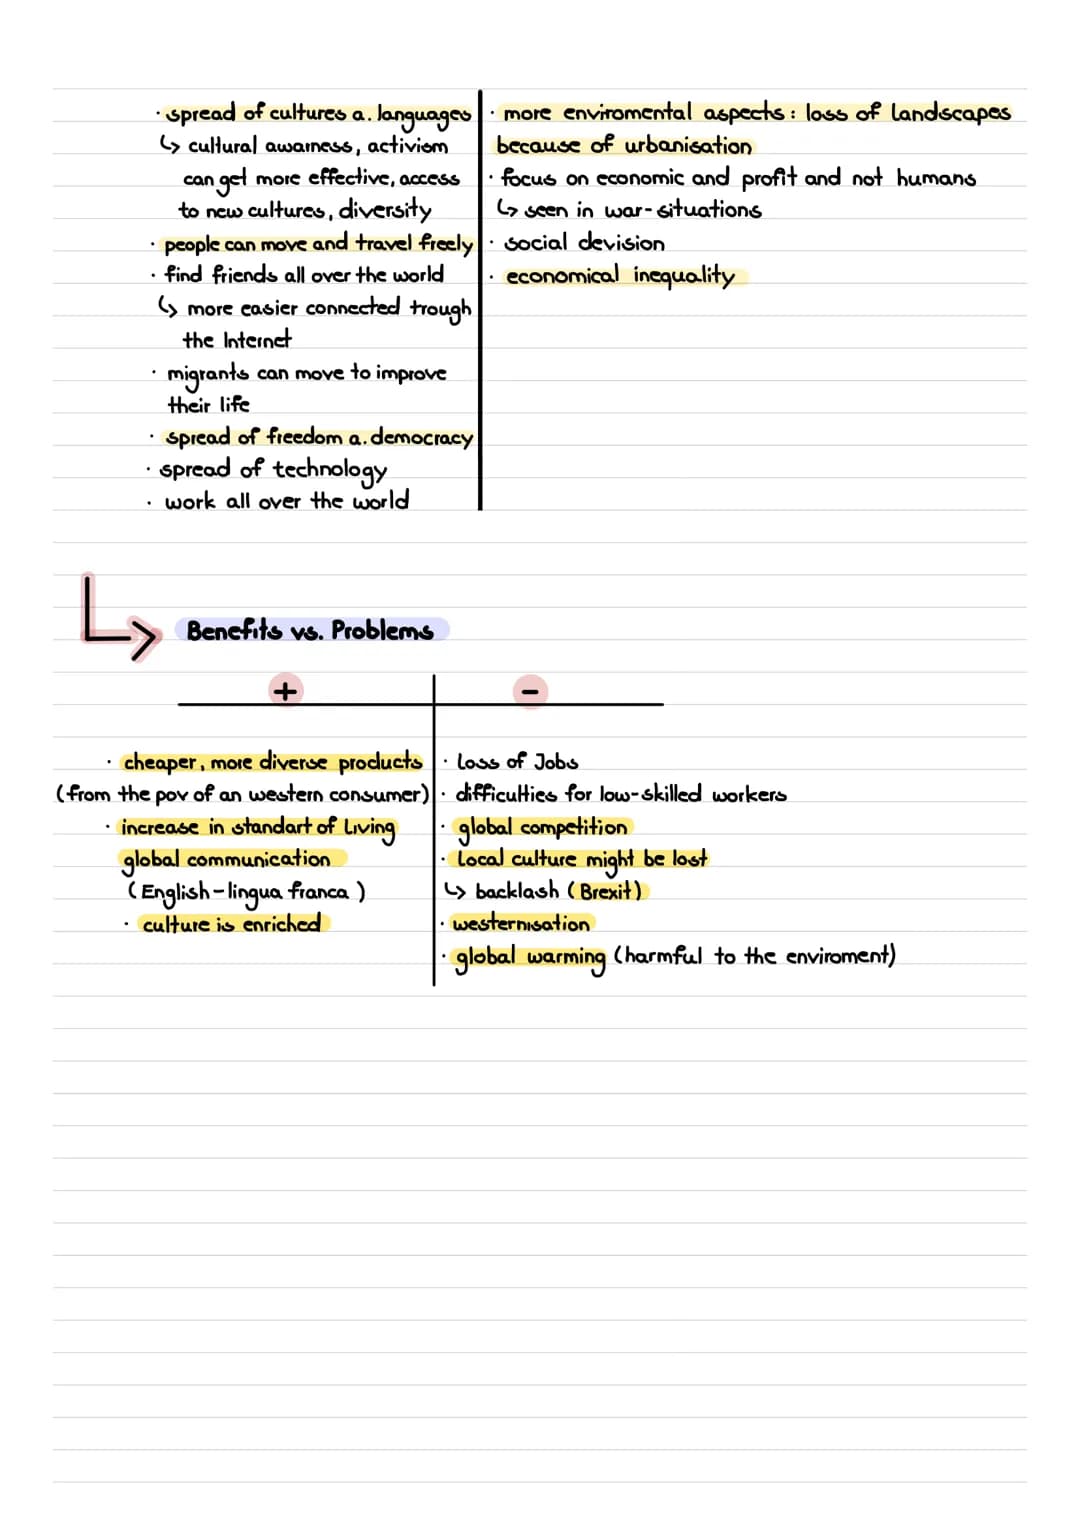 · spread of cultures a. languages
↳ cultural awarness, activism
can get more effective, access
to new cultures, diversity
· people can move and travel freely
· find friends all over the world
↳ more easier connected trough
the Internet
· migrants can move to improve
their life
· spread of freedom a. democracy
· spread of technology
· work all over the world
· more enviromental aspects: loss of landscapes
because of urbanisation
· focus on economic and profit and not humans
↳ seen in war-situations
· social devision
· economical inequality
Benefits vs. Problems
+
· cheaper, more diverse products
(from the pov of an western consumer)
· increase in standart of Living
global communication
(English-lingua franca)
· culture is enriched
-
· Loss of Jobs
· difficulties for low-skilled workers
· global competition
· Local culture might be lost
↳ backlash (Brexit)
· westernisation
· global warming (harmful to the enviroment)